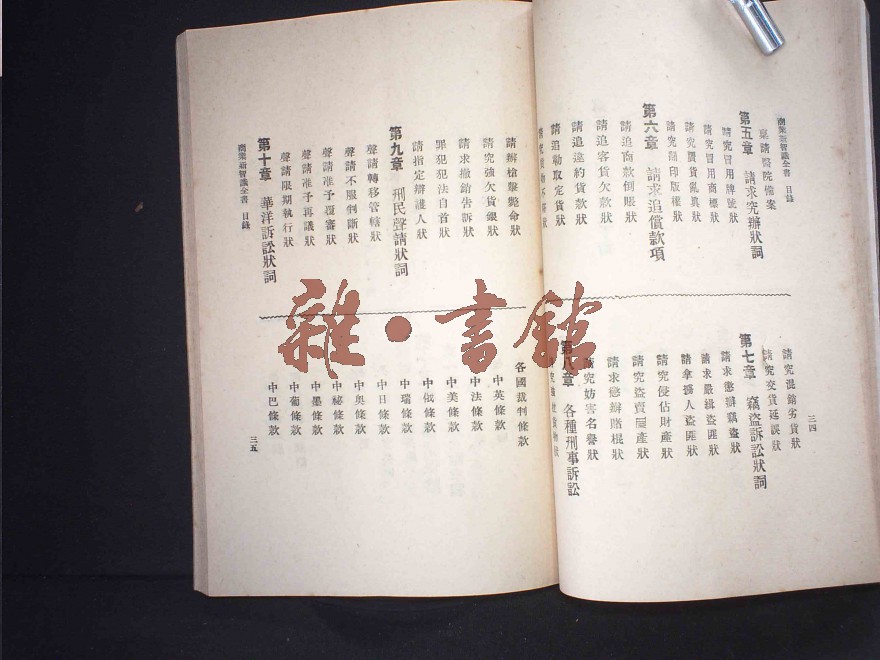 商業新智識全書 目錄
三四
稟請醫院備案
第五章 請求究辦狀詞
請究冒用牌號狀
請究冒用商標狀
請究贋貨亂真狀
請究翻印版權狀
第六章 請求追償款項
請追洵款倒賬狀
請追客貨欠款狀
請追違約貨款狀
請追勒取定貨狀
請究混銷劣貨狀
請究交貨延誤狀
第七章 竊盜訴訟狀詞
請求懲辦竊盜狀
請求嚴緝盜匪狀
請拿擄人盜匪狀
請究侵佔財產狀
請究盜賣屍產狀
請求懲辦賭棍狀
請究妨害名譽狀
第八章 各種刑事訴訟
請辦槍擊斃命狀
請究強欠貨銀狀
請求撤銷告訴狀
罪犯犯法自首狀
請指定辯護人狀
第九章 刑民聲請狀詞
聲請轉移管轄狀
聲請不服判斷狀
聲請准予覆審狀
聲請准予再議狀
聲請限期執行狀
第十章 華洋訴訟狀詞
商業新智識全書 目錄
各國裁判條款
中英條款
中法條款
中美條款
中俄條款
中瑞條款
中日條款
中奥條款
中祕條款
中墨條款
中葡條款
中巴條款
三五
雜·書館